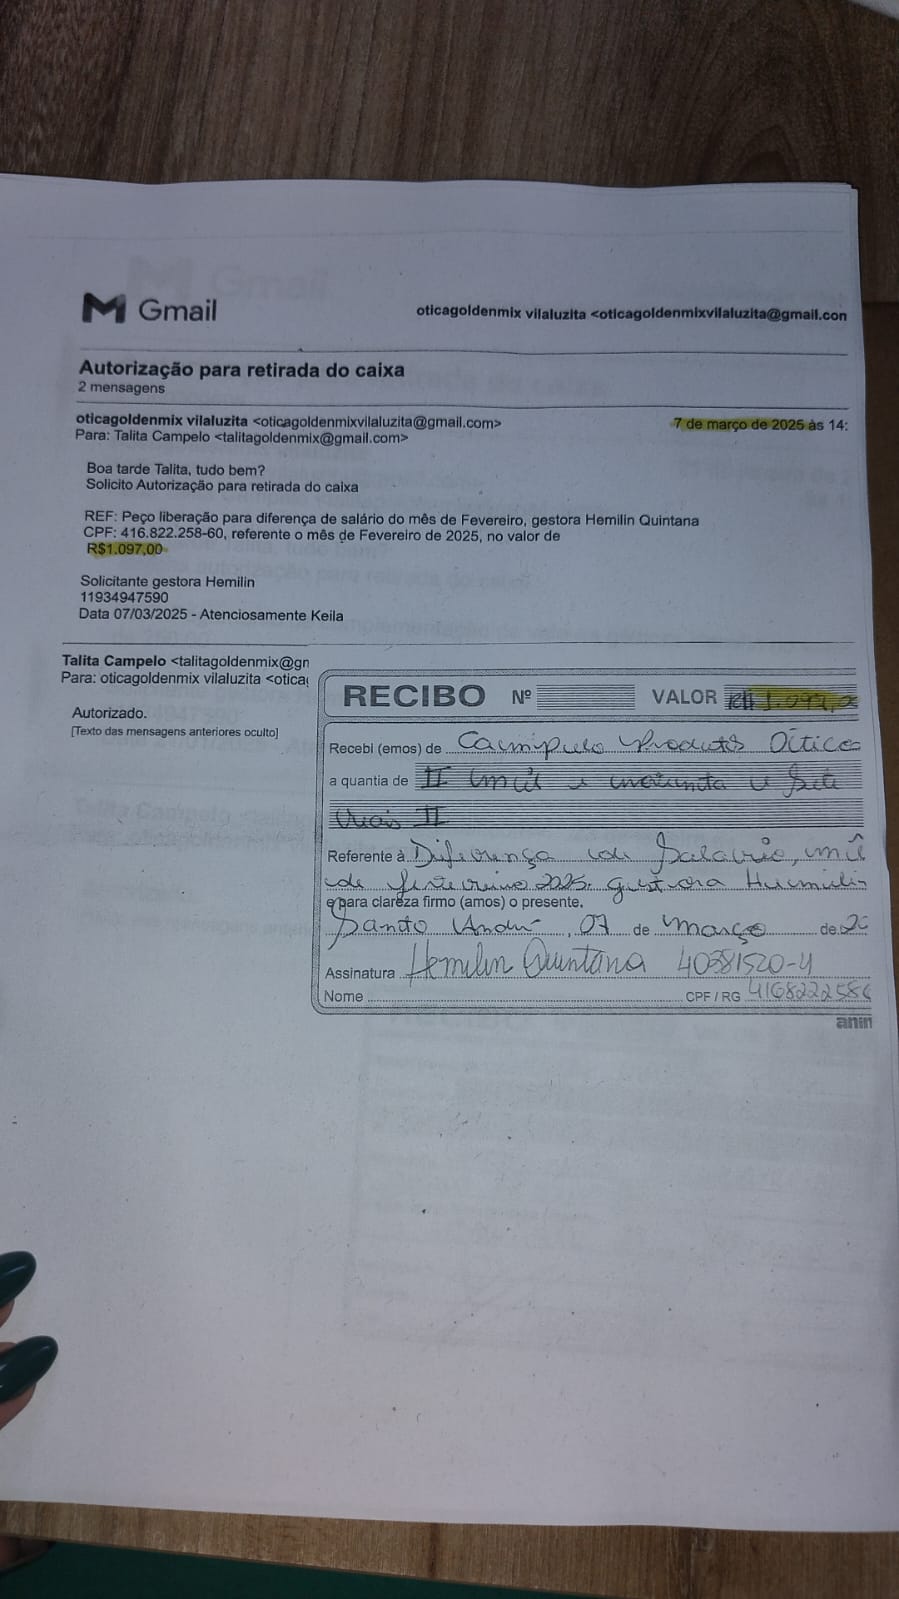 Gmail
oticagoldenmix vilaluzita <oticagoldenmixvilaluzita@gmail.con
Autorização para retirada do caixa
2 mensagens
oticagoldenmix vilaluzita <oticagoldenmixvilaluzita@gmail.com>
7 de março de 2025 às 14:
Para: Talita Campelo <talitagoldenmix@gmail.com>
Boa tarde Talita, tudo bem?
Solicito Autorização para retirada do caixa
REF: Peço liberação para diferença de salário do mês de Fevereiro, gestora Hemilin Quintana
CPF: 416.822.258-60, referente o mês de Fevereiro de 2025, no valor de
R$1.097,00
Solicitante gestora Hemilin
11934947590
Data 07/03/2025 - Atenciosamente Keila
Talita Campelo <talitagoldenmix@gr
Para: oticagoldenmix vilaluzita <otica
Autorizado.
[Texto das mensagens anteriores oculto]
RECIBO Nº VALOR R$ 1.097,
Recebi (emos) de Campelo Produtos Oticos
a quantia de II um mil e noventa e Sete
reais II
Referente à Diferença de Salário, mê
de fevereiro 2025. gestora Hemilin
e para clareza firmo (amos) o presente.
Santo André, 07 de março de 20
Assinatura Hemilin Quintana 40381520-4
Nome CPF / RG
anin